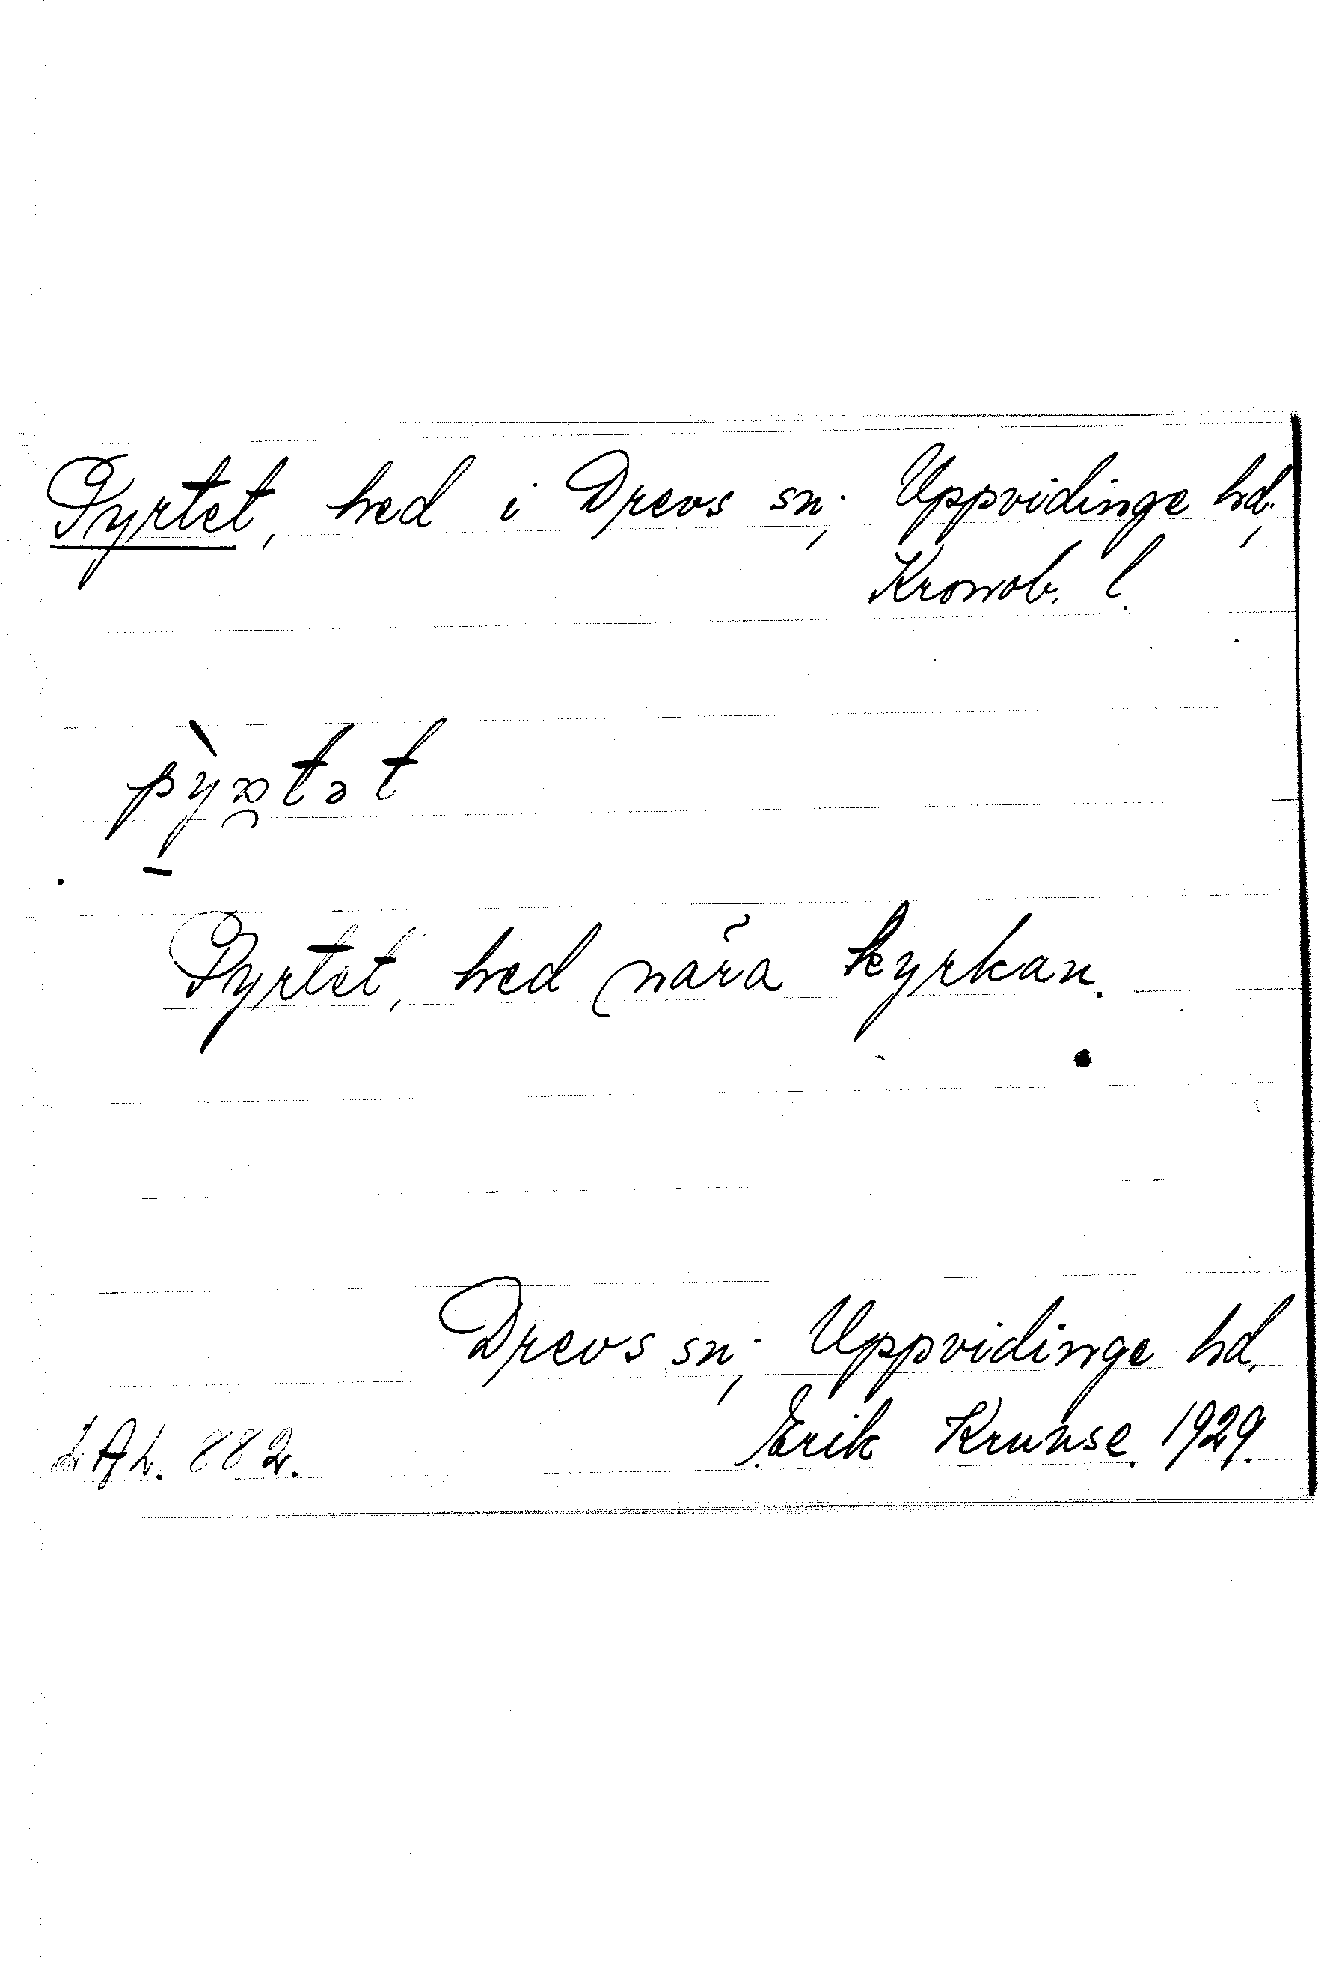 Pyrtet, hed i Drevs sn; Uppvidinge hd;
Kronob. l.
Pyrtet, hed nära kyrkan.
Drevs sn; Uppvidinge hd.
L A L. 882. Erik Kruuse. 1929.